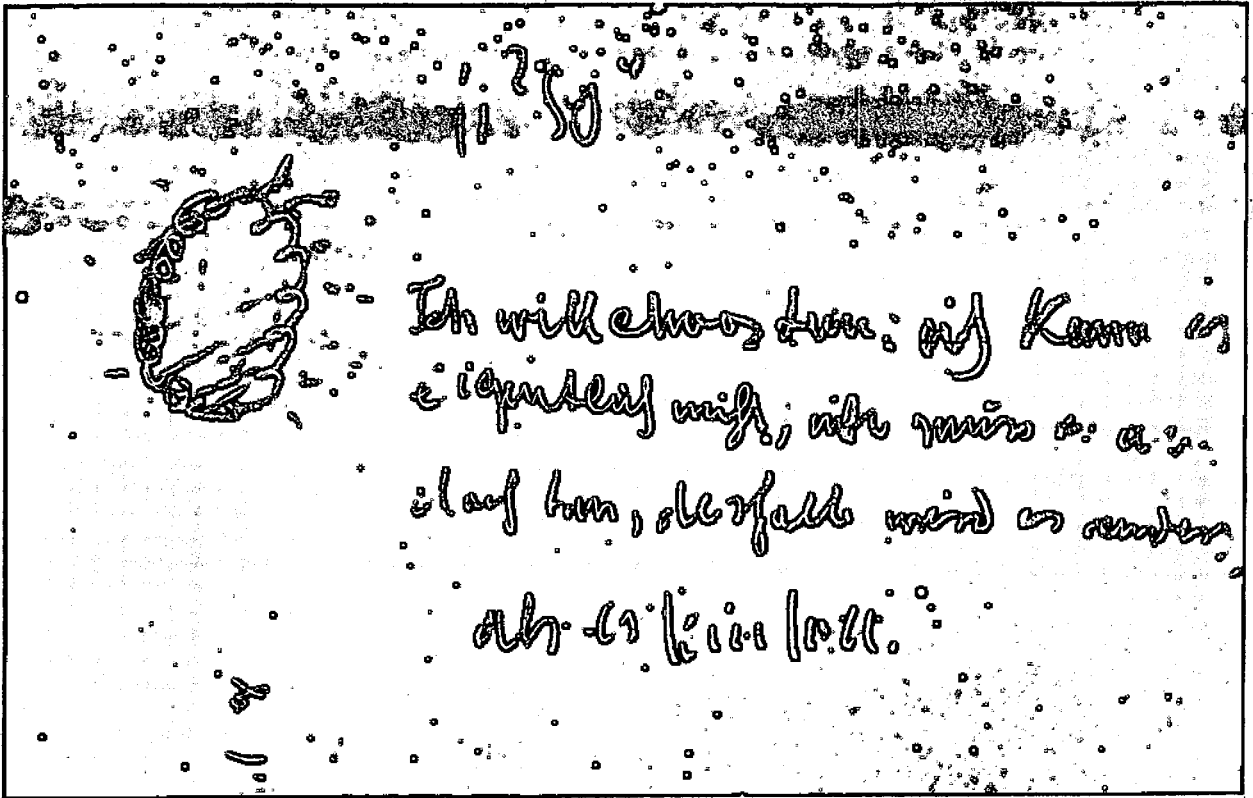 Ich will etwas tun: ich kann es
eigentlich nicht; ich muss es
doch tun, deshalb wird es anders
als es sein soll.